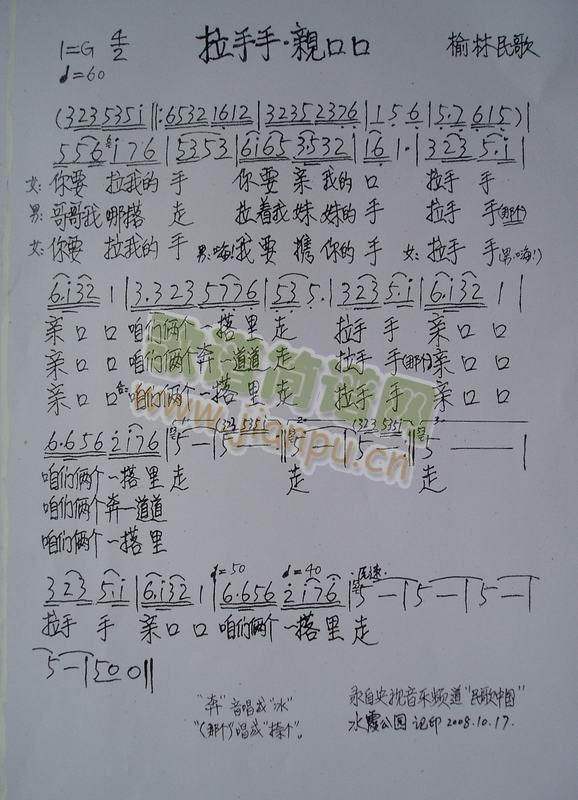 1=G 4/2 拉手手·親口口 榆林民歌
♩=60
(323 535i |‖: 65321612 | 32352376 | 1 5 6 | 5.7 615 ) |
556 i76 | 5353 | 6i65 3532 | 16 1· | 323 5.i |
女: 你要 拉我的 手 你要 亲我的 口 拉手 手
男: 哥哥我 哪搭 走 拉着我 妹妹的 手 拉手 手(那个)
女: 你要 拉我的 手 男:嗨!我要 携你的 手 女: 拉手 手(男:嗨!)
6.i32 1 | 3.323 5776 | 53 5. | 323 5.i | 6.i32 1 |
亲口 口 咱们俩个 一搭里 走 拉手 手 亲口 口
亲口 口 咱们俩个 奔一道道 走 拉手 手(那个) 亲口 口
亲口 口 合:咱们俩个 一搭里 走 拉手 手 亲口 口
6.656 2i76 | 5 — | 5 — | 5 — | 5 — | 5 — |
咱们俩个 一搭里 走 走 走
咱们俩个 奔一道道
咱们俩个 一搭里
♩=50 ♩=40 原速
323 5.i | 6.i32 1 | 6.656 2i76 | 5 — | 5 — | 5 — |
拉手 手 亲口 口 咱们俩个 一搭里 走
5 — | 50 0 ‖
"奔"音唱成"水"
"(那个)"唱成"捺个"。
录自央视音乐频道"民歌中国"
水霞公园 记印 2008.10.17.
歌谱简谱网
www.jianpu.cn